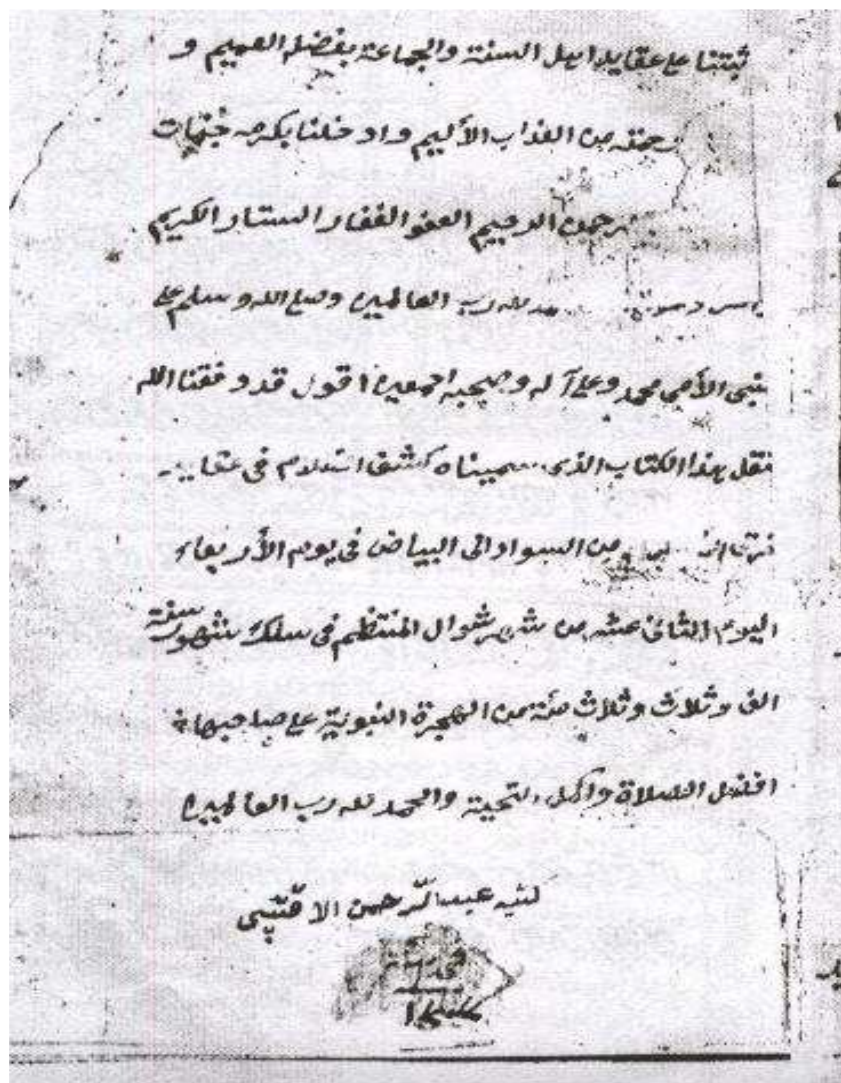 ثبتنا على عقايد اهل السنة والجماعة بفضله العميم و
رحمته من العذاب الأليم وادخلنا بكرمه جنات
الرحيم العفو الغفار الستار الكريم
لله رب العالمين وصلى الله وسلم على
نبي الأمي محمد وعلى آله وصحبه اجمعين اقول قد وفقنا الله
نقل هذا الكتاب الذى سميناه كشف الظلام فى عقايد
من السواد الى البياض فى يوم الأربعاء
اليوم الثانى عشر من شهر شوال المنتظم فى سلك شهور سنة
الف وثلاث وثلاث مئة من الهجرة النبوية على صاحبها
افضل الصلاة وأكمل التحية والحمد لله رب العالمين
كتبه عبد الرحمن الاقتپى